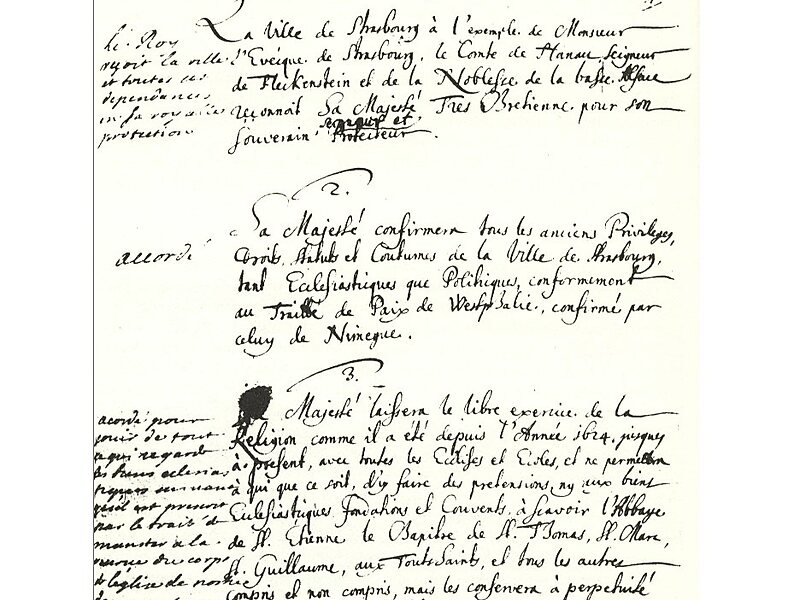 La Ville de Strasbourg à l'exemple de Monsieur
l'Eveique de Strasbourg, le Comte de Hanau Seigneur
de Fleckenstein et de la Noblesse de la basse Alsace
reconnoit Sa Majesté Tres Chretienne pour son
Souverain et
Protecteur.
le Roy
reçoit la ville
et toutes ses
dependances
en sa royalle
protection
2.
Sa Majesté confirmera tous les anciens Privileges,
Droits, Statuts et Coutumes de la Ville de Strasbourg,
tant Ecclesiastiques que Politiques, conformement
au Traitté de Paix de Westphalie, confirmé par
celuy de Nimegue.
accordé
3.
Sa Majesté laissera le libre exercice de la
Religion comme il a été depuis l'Année 1624. jusques
à present, avec toutes les Eclises et Ecoles, et ne permettra
à qui que ce soit, d'y faire des pretensions, ny aux biens
Ecclesiastiques, fondations et Couvents, à scavoir l'Abbaye
de St. Etienne le Chapitre de St. Thomas, St. Marc,
St. Guillaume, aux Touts Saints, et tous les autres
compris et non compris, mais les conservera à perpetuité
acordé pour
jouir de tout
ce qui regarde
les biens eclesias
tiques suivant
qu'il est prescrit
par le traité de
munster a la
reserve du corps
de l'église de nostre